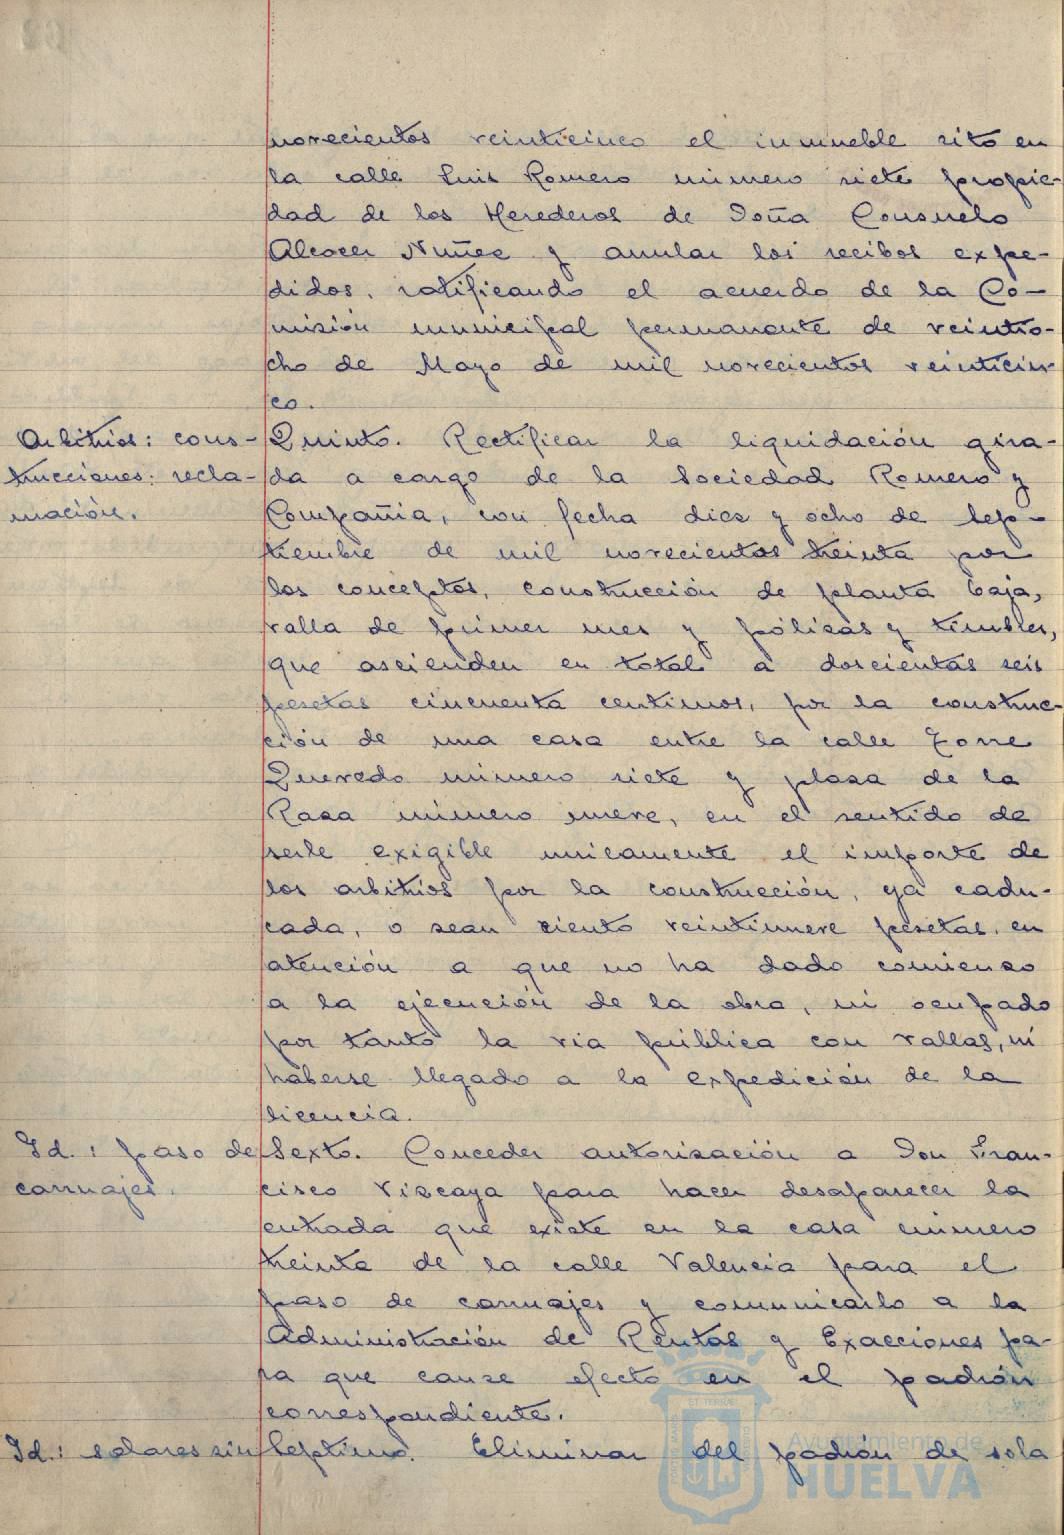 novecientos veinticinco el inmueble sito en
la calle Luis Romero número siete propie-
dad de los Herederos de Doña Consuelo
Alcocer Nuñez y anular los recibos expe-
didos, ratificando el acuerdo de la Co-
misión municipal permanante de veintio-
cho de Mayo de mil novecientos veinticin-
co.
Arbitrios: cons-
trucciones: recla-
mación.
Quinto. Rectificar la liquidación gira-
da a cargo de la Sociedad Romero y
Compañia, con fecha diez y ocho de Sep-
tiembre de mil novecientos treinta por
los conceptos, construcción de planta baja,
valla de primer mes y pólizas y timbres,
que ascienden en total a doscientas seis
pesetas cincuenta centimos, por la construc-
ción de una casa entre la calle Jorre
Quevedo número siete y plaza de la
Raza número nueve, en el sentido de
serle exigible unicamente el importe de
los arbitrios por la construcción, ya cadu-
cada, o sean ciento veintinueve pesetas, en
atención a que no ha dado comienzo
a la ejecución de la obra, ni ocupado
por tanto la via pública con vallas, ni
haberse llegado a la expedición de la
licencia.
Id.: paso de
carruajes.
Sexto. Conceder autorización a Don Fran-
cisco Vizcaya para hacer desaparecer la
entrada que existe en la casa número
treinta de la calle Valencia para el
paso de carruajes y comunicarlo a la
Administración de Rentas y Exacciones pa-
ra que cause efecto en el padrón
correspondiente.
Id.: solares sin
Septimo. Eliminar del padrón de sola
Ayuntamiento de
HUELVA